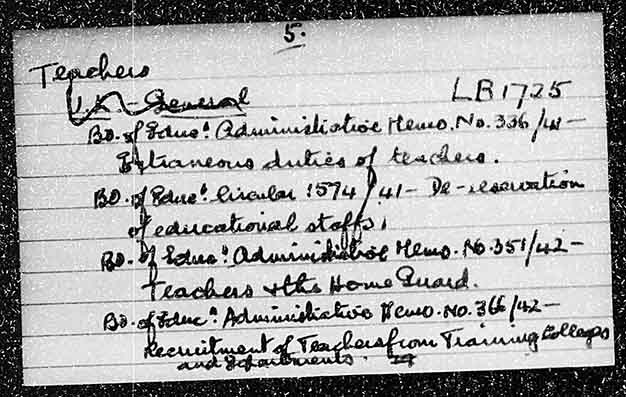 5.
Teachers
U.K. - General LB1725
Bd. of Educn. Administrative Memo. No. 336/41 -
Extraneous duties of teachers.
Bd. of Educn. Circular 1574/41 - De-reservation
of educational staffs.
Bd. of Educn. Administrative Memo. No. 351/42 -
Teachers & the Home Guard.
Bd. of Educn. Administrative Memo. No. 366/42 -
Recruitment of Teachers from Training Colleges
and Departments.